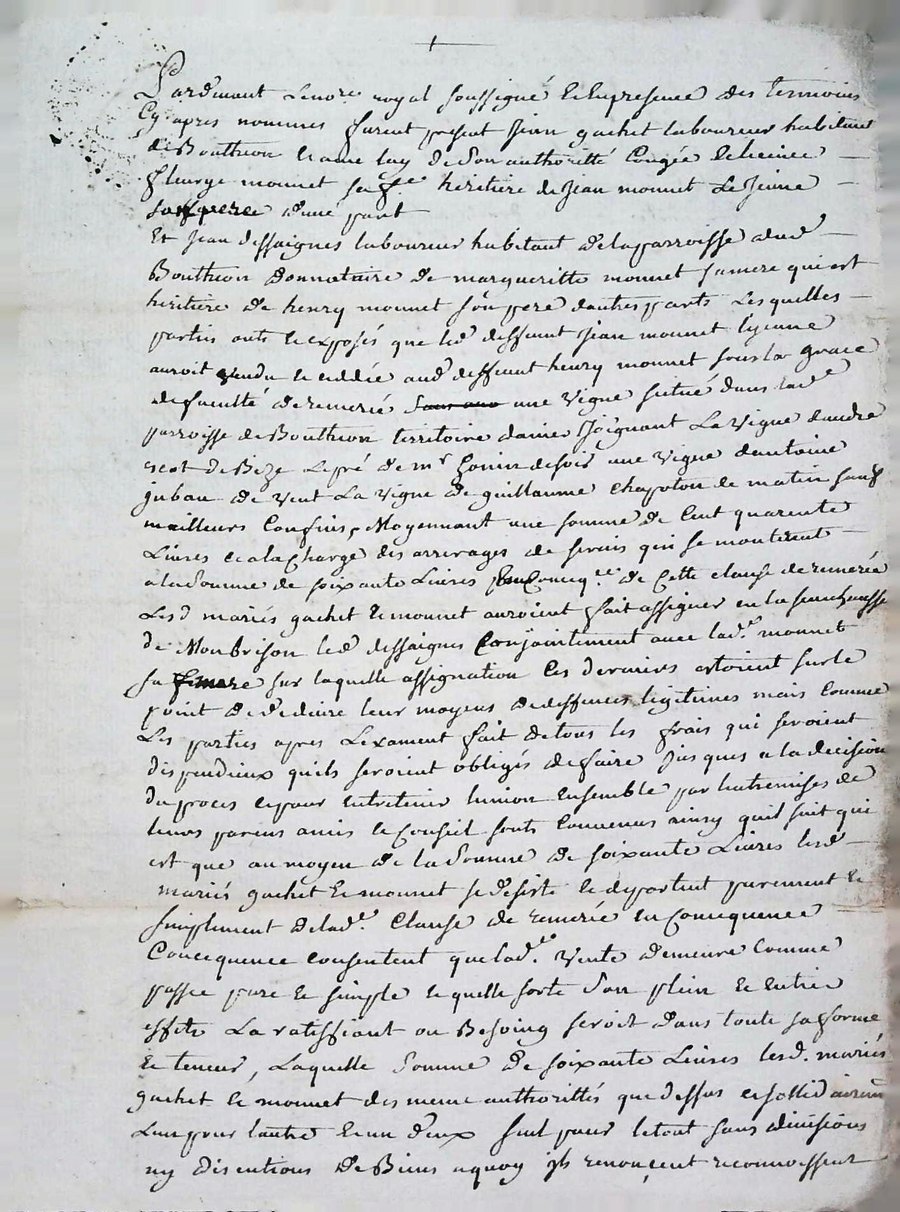 Pardevant Le nore. royal soussigné et en presence des temoins
Cy apres nommes furent present Jean gachet laboureur habitant
de Bouthion et avec luy de son authorité Congée et licence
fleurye monnet sa fe. heritiere de Jean monnet Le Jeune
son pere d'une part
Et Jean dessaignes laboureur habitant de la parroisse dud
Bouthion donnataire de margueritte monnet sa mere qui est
heritiere de henry monnet son pere dautres parts Lesquelles
parties onts exposés que led deffunt Jean monnet
auroit vendu et ceddée aud deffunt henry monnet sous la grace
de faculté de remerée une vigne scitué dans lade
parroisse de Bouthion territoire Joignant La vigne dandré
de Bize Le pré de mr de soir une vigne dantoine
de vent La vigne de guillaume Chapoton de matin sauf
meilleurs Confins, Moyennant une somme de Cent quarente
Livres et a la Charge des arrerages de servis qui se monterent
a la somme de soixante Livres de Cette clause de remerée
Lesd mariés gachet et monnet auroient fait assigner en la senechaussé
de Monbrison led dessaignes Conjointement avec lade. monnet
sa mere sur laquelle assignation Ces derniers estoient sur le
point de deduire leur moyens de deffences legitimes mais Comme
Les parties apres Lexament fait de tous les frais qui seroient
dispendieux quils seroient obligés de faire Jusques a la decision
du proces et pour entretenir lunion ensemble par lentremises de
leurs parens amis et Conseil sonts Convenus ainsy quil suit qui
est que au moyen de la somme de soixante Livres lesd
mariés gachet et monnet se desiste et departent purement et
simplement de lade. Clause de remerée en Concequence
Concequence consentent que lade. vente demeure Comme
passée pure et simple et quelle sorte son plein et entier
effets La ratiffiant au Besoing seroit dans toute sa forme
et teneur, Laquelle somme de soixante Livres lesd. mariés
gachet et monnet des meme authorittés que dessus et sollidairem
Lun pour lautre et un deux seul pour le tout sans divisions
ny discutions de Biens a quoy ils renoncent reconnoissent